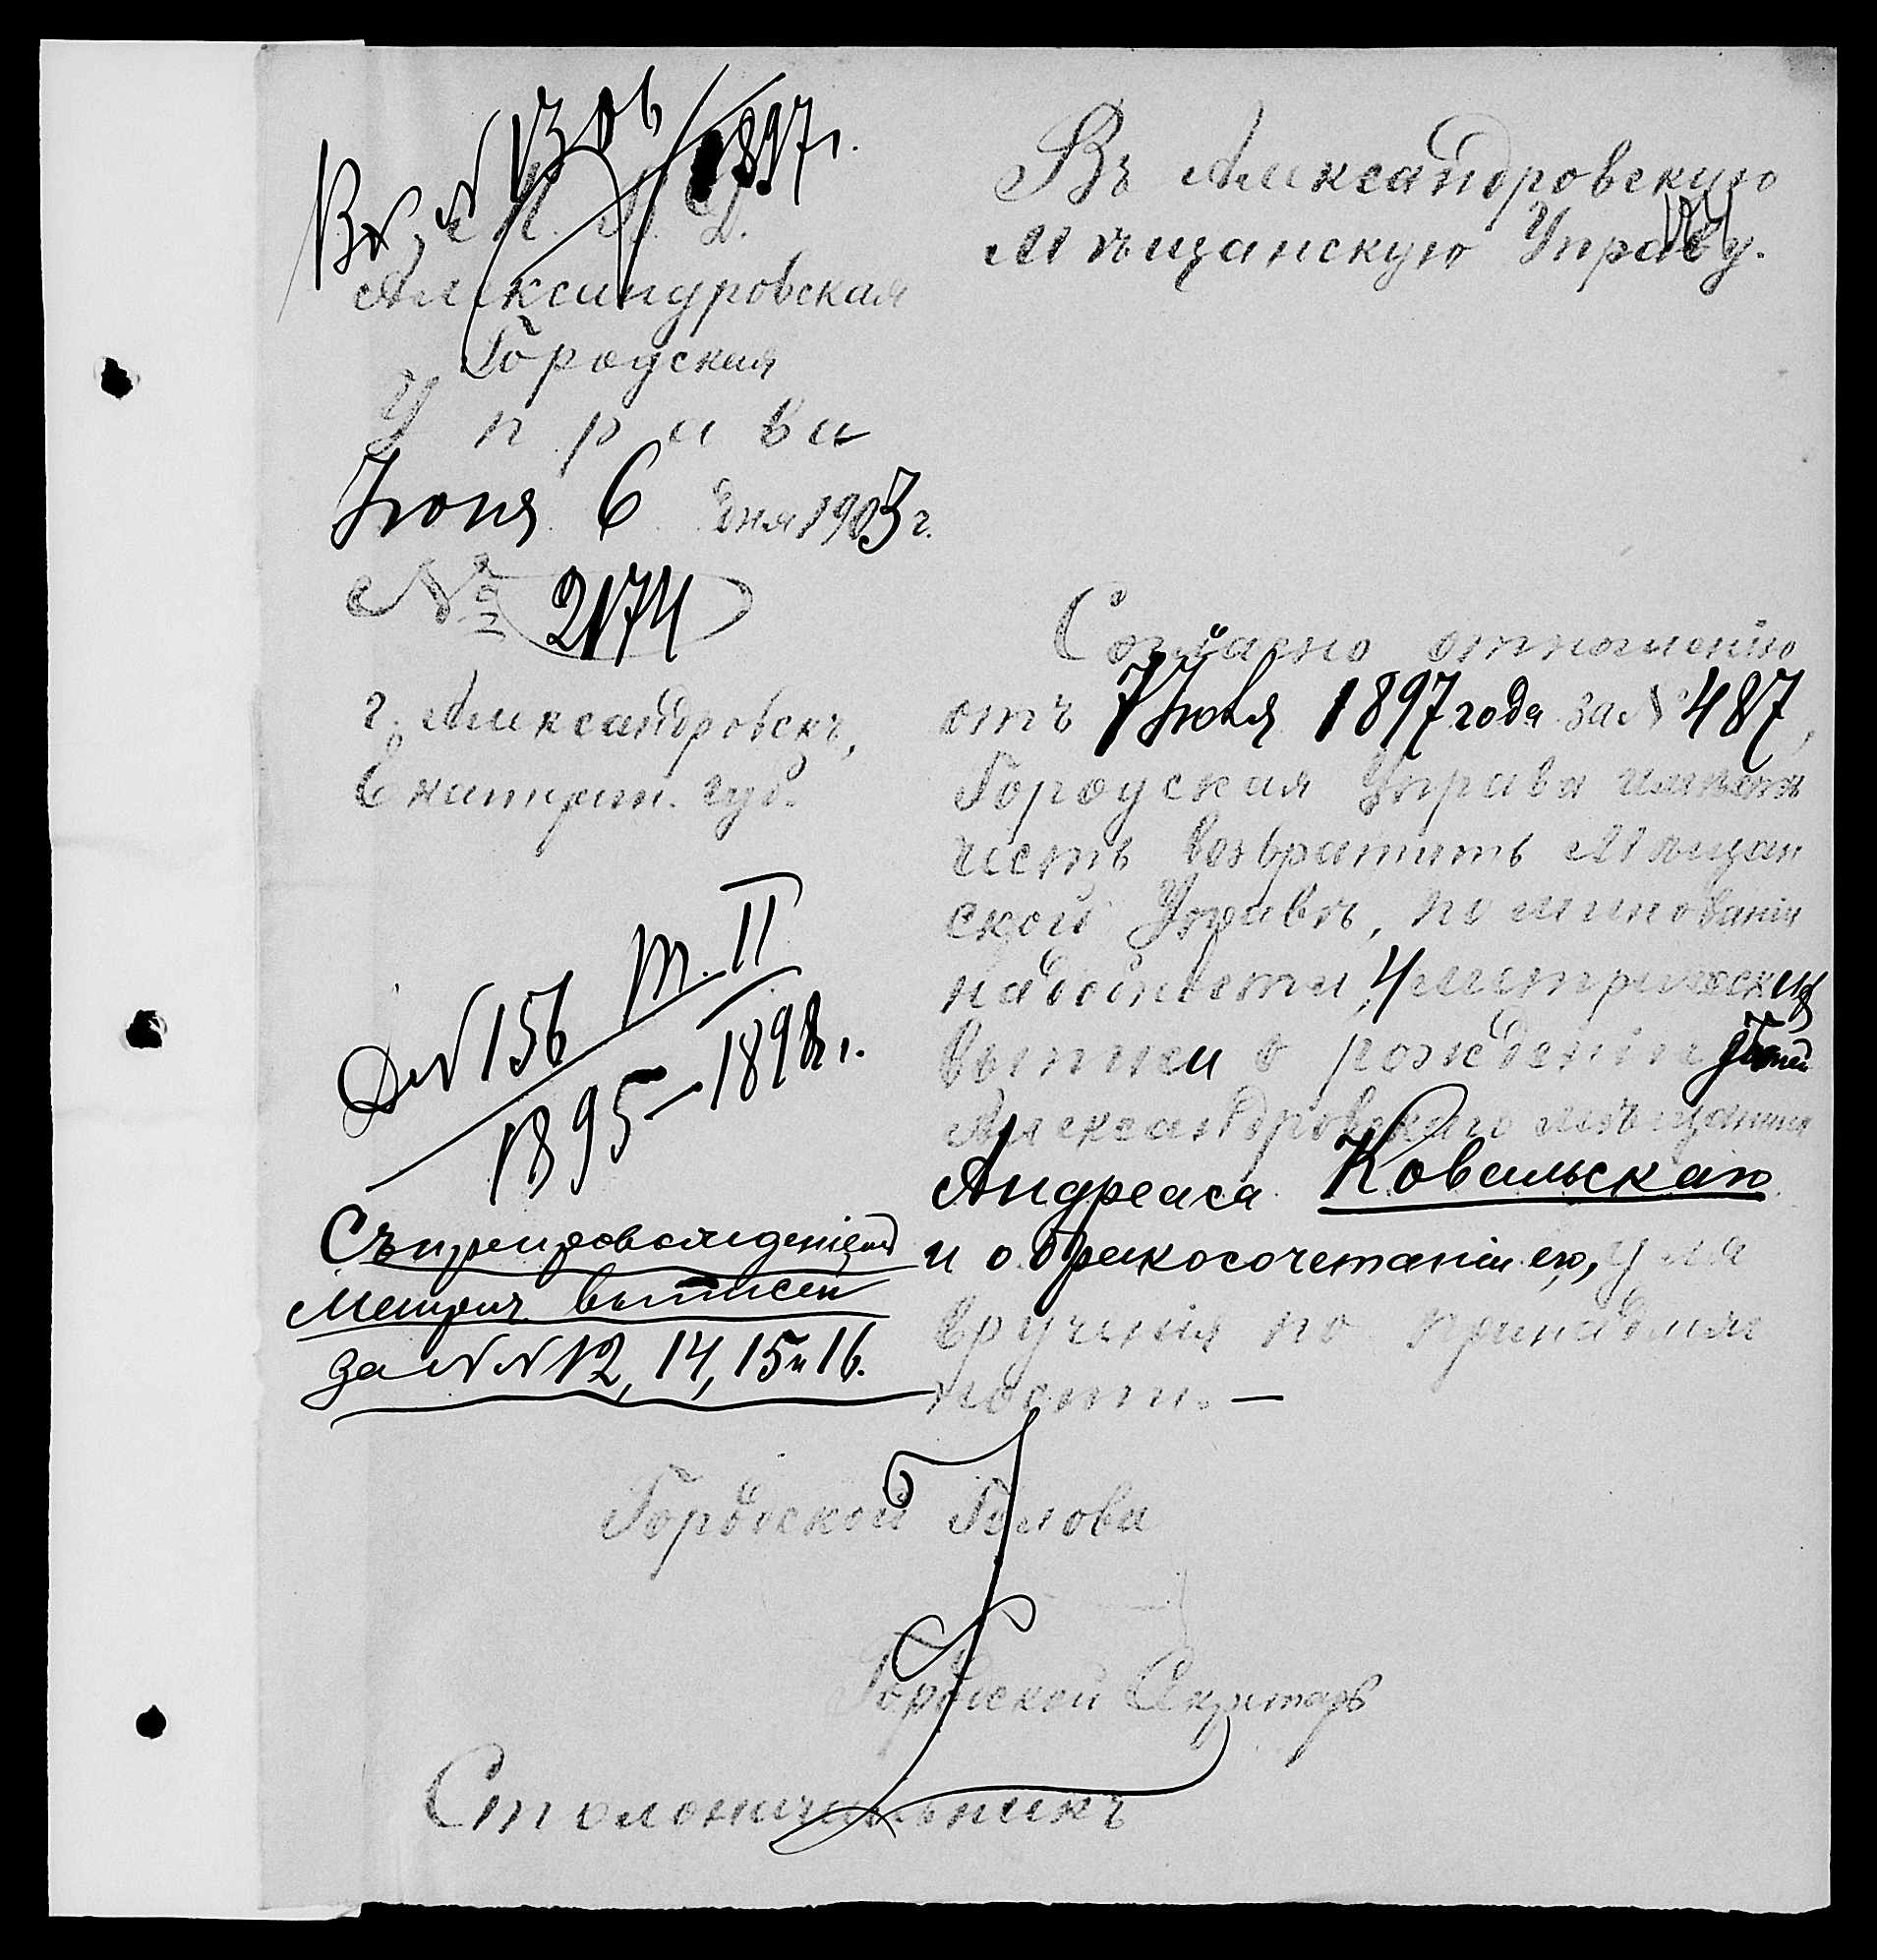 Вх. № 1306/1897 г.
М. В. Д.
Александровская
Городская
Управа
Іюня 6 дня 1903 г.
№ 2174
г. Александровскъ,
Екатерин. губ.
Д № 156 т. II
1895–1898 г.
Съ препровожденіемъ
Метрич. выписей
за №№ 12, 14, 15 и 16.
Въ Александровскую
Мѣщанскую Управу.
Согласно отношенію
отъ 7 Іюня 1897 года за № 487,
Городская Управа имѣетъ
честь возвратить Мѣщан
ской Управѣ, по минованіи
надобности, 4 метрическія
выписи о рожденіи дѣтей
Александровскаго мѣщанина
Андреаса Ковальскаго
и о бракосочетаніи его, для
врученія по принадлеж
ности. —
Городской Голова
Городской Секретарь
Столоначальникъ